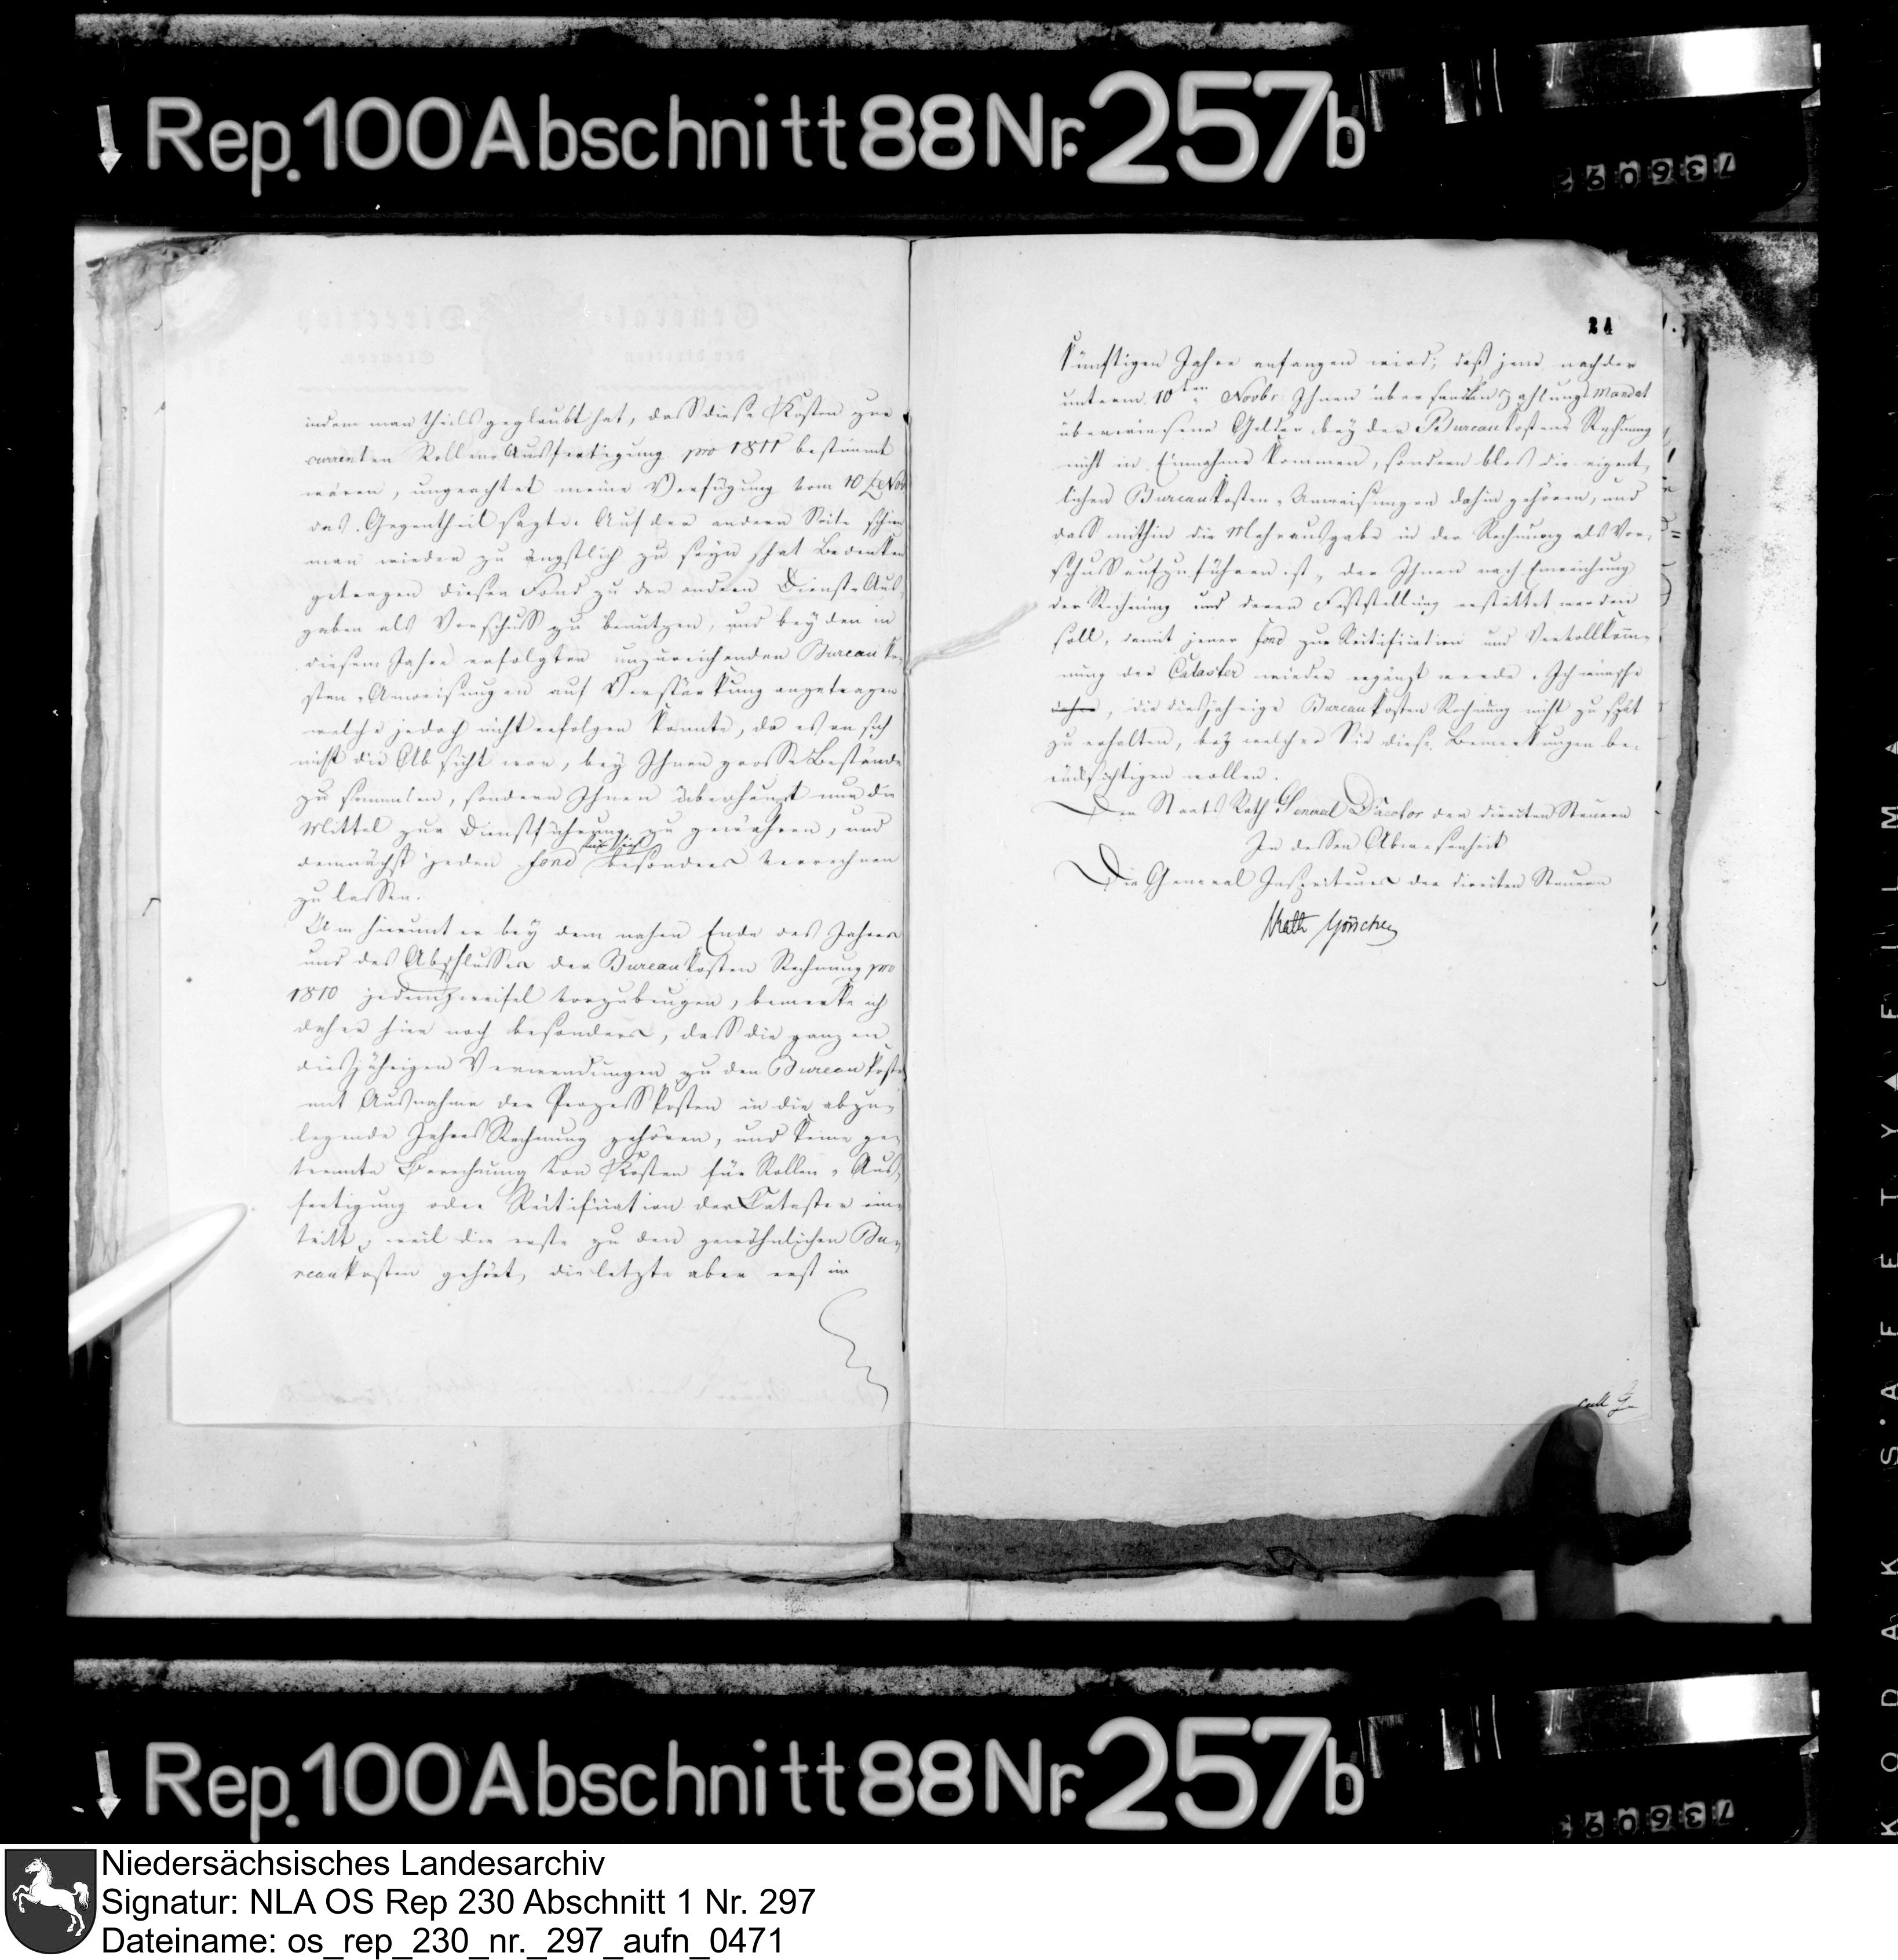 Rep. 100 Abschnitt 88 Nr. 257b
736092
24
indem man theils geglaubt hat, dass diese Kosten zur
currenten Rollen-Ausfertigung pro 1811 bestimmt
wären, ungeachtet meine Verfügung vom 10 Nov
das Gegentheil sagte. Auf der andern Seite schien
man wieder zu ängstlich zu seyn, hat Bedenken
getragen diesen Fond zu den andern Dienst-Aus-
gaben als Vorschuss zu benutzen, und bey den in
diesem Jahre erfolgten unzureichenden Bureauko-
sten-Anweisungen auf Verstärkung angetragen
welche jedoch nicht erfolgen konnte, da es an sich
nicht die Absicht war, bey Ihnen grosse Bestände
zu sammlen, sondern Ihnen überhaupt nur die
Mittel zur Dienstführung zu gewähren, und
demnächst jeden Fond für sich besonders verrechnen
zu lassen.
Um hierunter bey dem nahen Ende des Jahres
und des Abschlusses der Bureaukosten Rechnung pro
1810 jedem Zweifel vorzubeugen, bemerke ich
daher hier noch besonders, dass die ganzen
diesjährigen Verwendungen zu den Bureaukosten
mit Ausnahme der Prozesskosten in die abzu-
legende Jahres Rechnung gehören, und keine ge-
trennte Berechnung von Kosten für Rollen-Aus-
fertigung oder Rectification der Cataster ein-
tritt, weil die erste zu den gewöhnlichen Bu-
reaukosten gehört, die letzte aber erst im
künftigen Jahre anfangen wird; daß jene nach der
unterm 10ten Novbr. Ihnen übersandten Zahlungs Mandat
überwiesene Gelder bey der Bureaukostens Rechnung
nicht in Einnahme kommen, sondern blos die eigent-
lichen Bureaukosten-Anweisungen dahin gehören, und
dass mithin die Mehrausgabe in der Rechnung als Vor-
schuss aufzuführen ist, der Ihnen nach Einreichung
der Rechnung und deren Feststellung erstattet werden
soll, damit jener Fond zur Rectification und Vervollkom-
nung der Cataster wieder ergänzt werde. Ich wünsche
daher, die diesjährige Bureaukosten Rechnung nicht zu spät
zu erhalten, bey welcher Sie diese Bemerkungen be-
rücksichtigen wollen.
Der Staats Rath General Director der directen Steuern
In dessen Abwesenheit
Die General Inspecteurs der directen Steuern
Malth Göschen
Rep. 100 Abschnitt 88 Nr. 257b
KODAK SAFETY FILM
Niedersächsisches Landesarchiv
Signatur: NLA OS Rep 230 Abschnitt 1 Nr. 297
Dateiname: os_rep_230_nr._297_aufn_0471